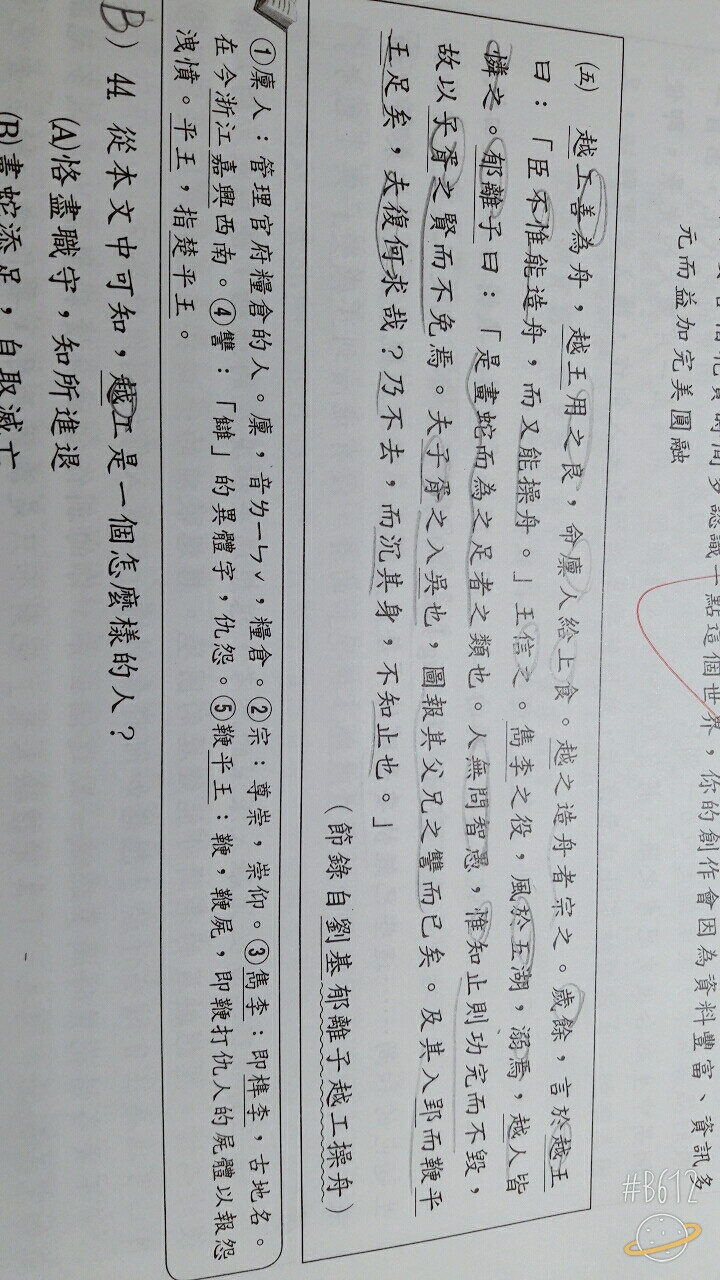 點認識一點這個世界，你的創作會因為資料豐富、資訊多
元而益加完美圓融
(五) 越工善為舟，越王用之良，命廩人給上食。越之造舟者宗之。歲餘，言於越王
曰：「臣不惟能造舟，而又能操舟。」王信之。雋李之役，風於五湖，溺焉，越人皆
憐之。郁離子曰：「是畫蛇而為之足者之類也。人無問智愚，惟知止則功完而不毀，
故以子胥之賢而不免焉。夫子胥之入吳也，圖報其父兄之讐而已矣。及其入郢而鞭平
王足矣，夫復何求哉？乃不去，而沉其身，不知止也。」
（節錄自劉基郁離子越工操舟）
①廩人：管理官府糧倉的人。廩，音ㄌㄧㄣˇ，糧倉。②宗：尊崇，崇仰。③雋李：即檇李，古地名。
在今浙江嘉興西南。④讐：「讎」的異體字，仇怨。⑤鞭平王：鞭，鞭屍，即鞭打仇人的屍體以報怨
洩憤。平王，指楚平王。
B) 44. 從本文中可知，越工是一個怎麼樣的人？
(A)恪盡職守，知所進退
(B)畫蛇添足，自取滅亡
#B612